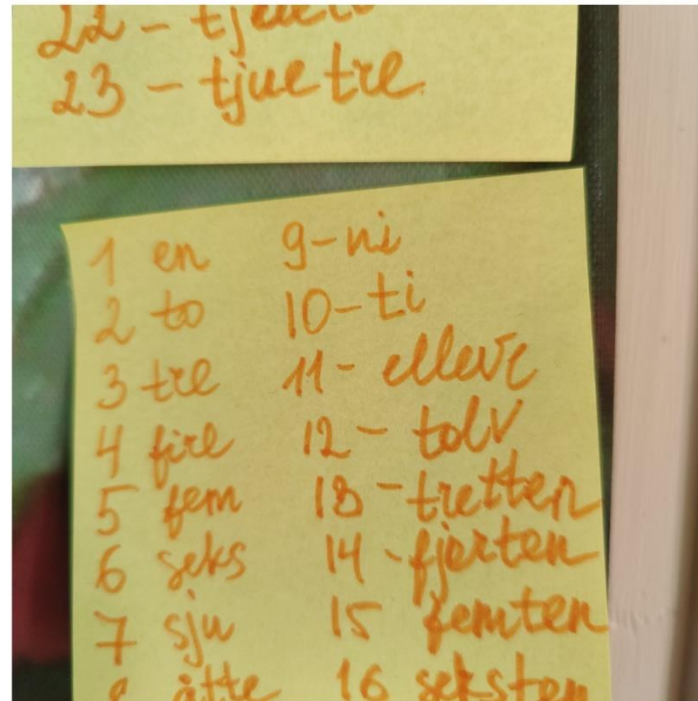 22 -
23 - tjuetre
1 en
2 to
3 tre
4 fire
5 fem
6 seks
7 sju
8 åtte
9-ni
10-ti
11- elleve
12 - tolv
13 -tretten
14 -fjorten
15 femten
16 seksten